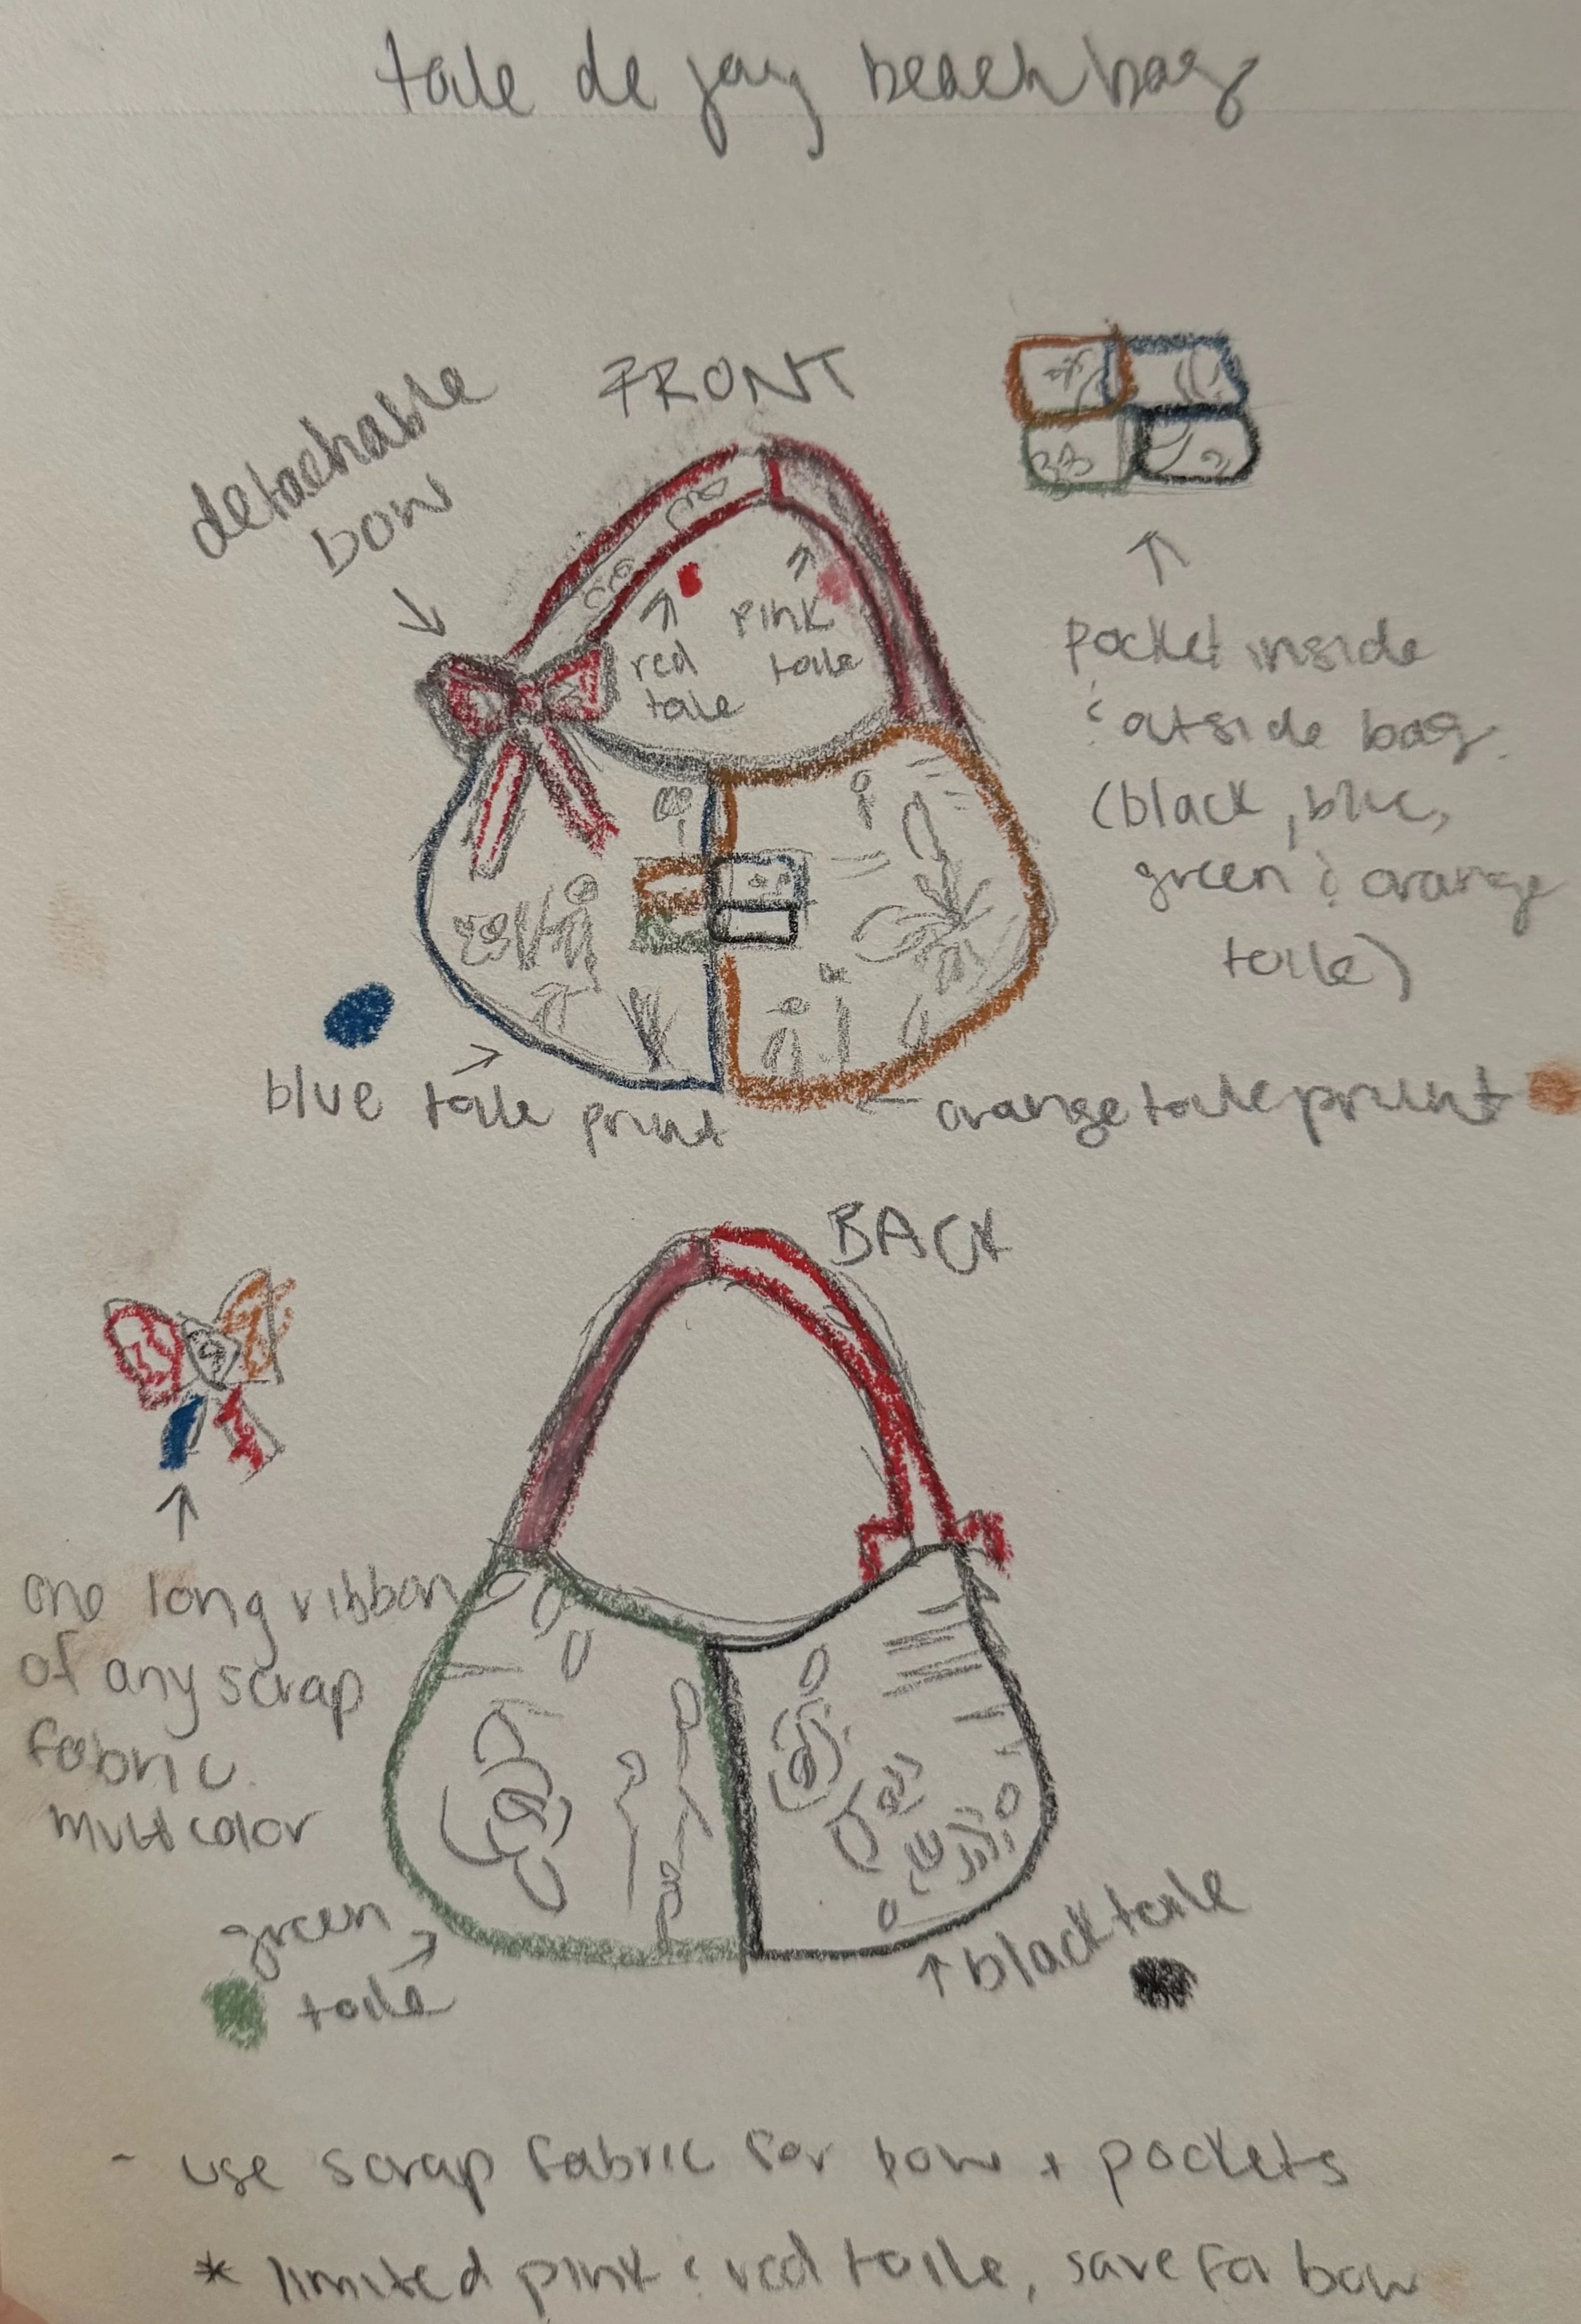 toile de jouy beach bag
FRONT
detachable
bow
red
toile
pink
toile
pocket inside
& outside bag.
(black, blue,
green & orange
toile)
blue toile print
orange toile print
BACK
one long ribbon
of any scrap
fabric.
multicolor
green
toile
black toile
- use scrap fabric for bow + pockets
* limited pink & red toile, save for bow